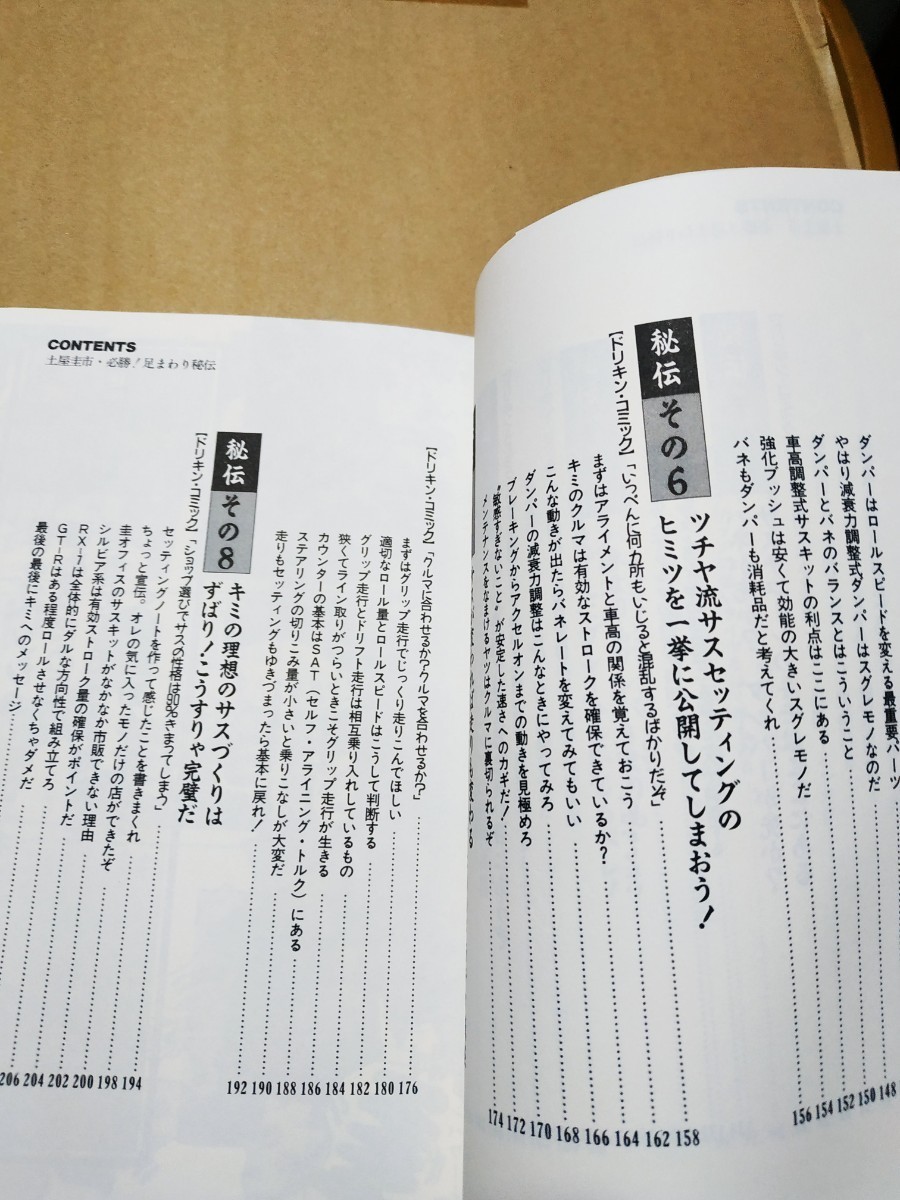 ダンパーはロールスピードを変える最重要パーツ
やはり減衰力調整式ダンパーはスグレモノなのだ 148
ダンパーとバネのバランスとはこういうこと 150
車高調整式サスキットの利点はここにある 152
強化ブッシュは安くて効能の大きいスグレモノだ 154
バネもダンパーも消耗品だと考えてくれ 156
秘伝その6
ツチヤ流サスセッティングの
ヒミツを一挙に公開してしまおう!
[ドリキン・コミック]「いっぺんに何カ所もいじると混乱するばかりだぞ」 158
まずはアライメントと車高の関係を覚えておこう 162
キミのクルマは有効なストロークを確保できているか? 164
こんな動きが出たらバネレートを変えてみてもいい 166
ダンパーの減衰力調整はこんなときにやってみろ 168
ブレーキングからアクセルオンまでの動きを見極めろ 170
"敏感すぎないこと"が安定した速さへのカギだ! 172
メンテナンスをなまけるヤツはクルマに裏切られるぞ 174
CONTENTS
土屋圭市・必勝!足まわり秘伝
[ドリキン・コミック]「クルマに合わせるか?クルマを合わせるか?」 176
まずはグリップ走行でじっくり走りこんでほしい 180
適切なロール量とロールスピードはこうして判断する 182
グリップ走行とドリフト走行は相互乗り入れしているもの 184
狭くてライン取りがつらいときこそグリップ走行が生きる 186
カウンターの基本はSAT(セルフ・アライニング・トルク)にある 188
ステアリングの切りこみ量が小さいと乗りこなしが大変だ 190
走りもセッティングもゆきづまったら基本に戻れ! 192
秘伝その8
キミの理想のサスづくりは
ずばり!こうすりゃ完璧だ
[ドリキン・コミック]「ショップ選びでサスの性格は90%きまってしまう」 194
セッティングノートを作って感じたことを書きまくれ 198
ちょっと宣伝。オレの気に入ったモノだけの店ができたぞ 200
圭オフィスのサスキットがなかなか市販できない理由 202
シルビア系は有効ストローク量の確保がポイントだ 204
RX-7は全体的にダルな方向性で組み立てろ 206
GT-Rはある程度ロールさせなくちゃダメだ
最後の最後にキミへのメッセージ